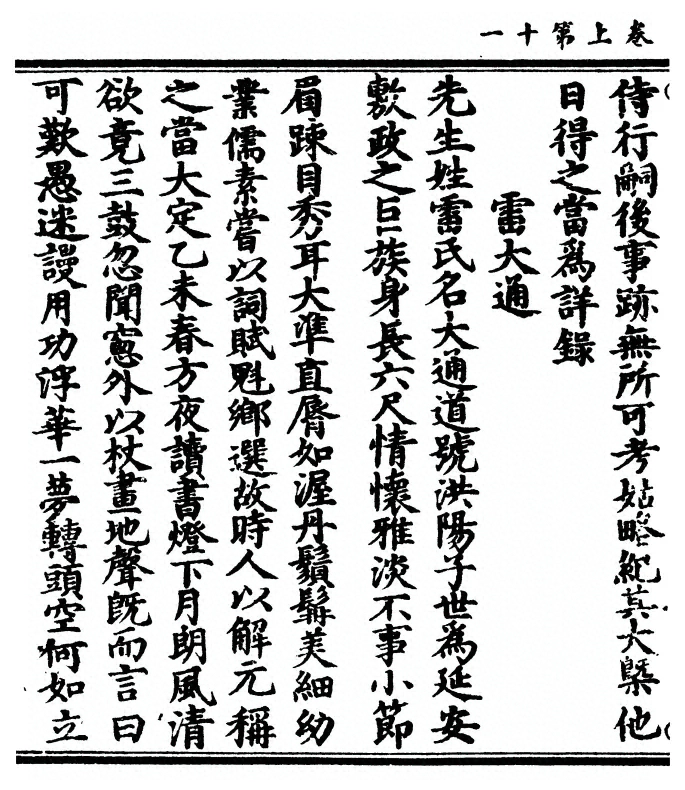 卷上第十一
侍行嗣後事跡無所可考姑略紀其大槩他
日得之當爲詳錄
雷大通
先生姓雷氏名大通道號洪陽子世爲延安
敷政之巨族身長六尺情懷雅淡不事小節
眉踈目秀耳大準直脣如渥丹鬚髯美細幼
業儒素嘗以詞賦魁鄉選故時人以解元稱
之當大定乙未春方夜讀書燈下月朗風清
欲竟三鼓忽聞窻外以杖畫地聲旣而言曰
可歎愚迷謾用功浮華一夢轉頭空何如立